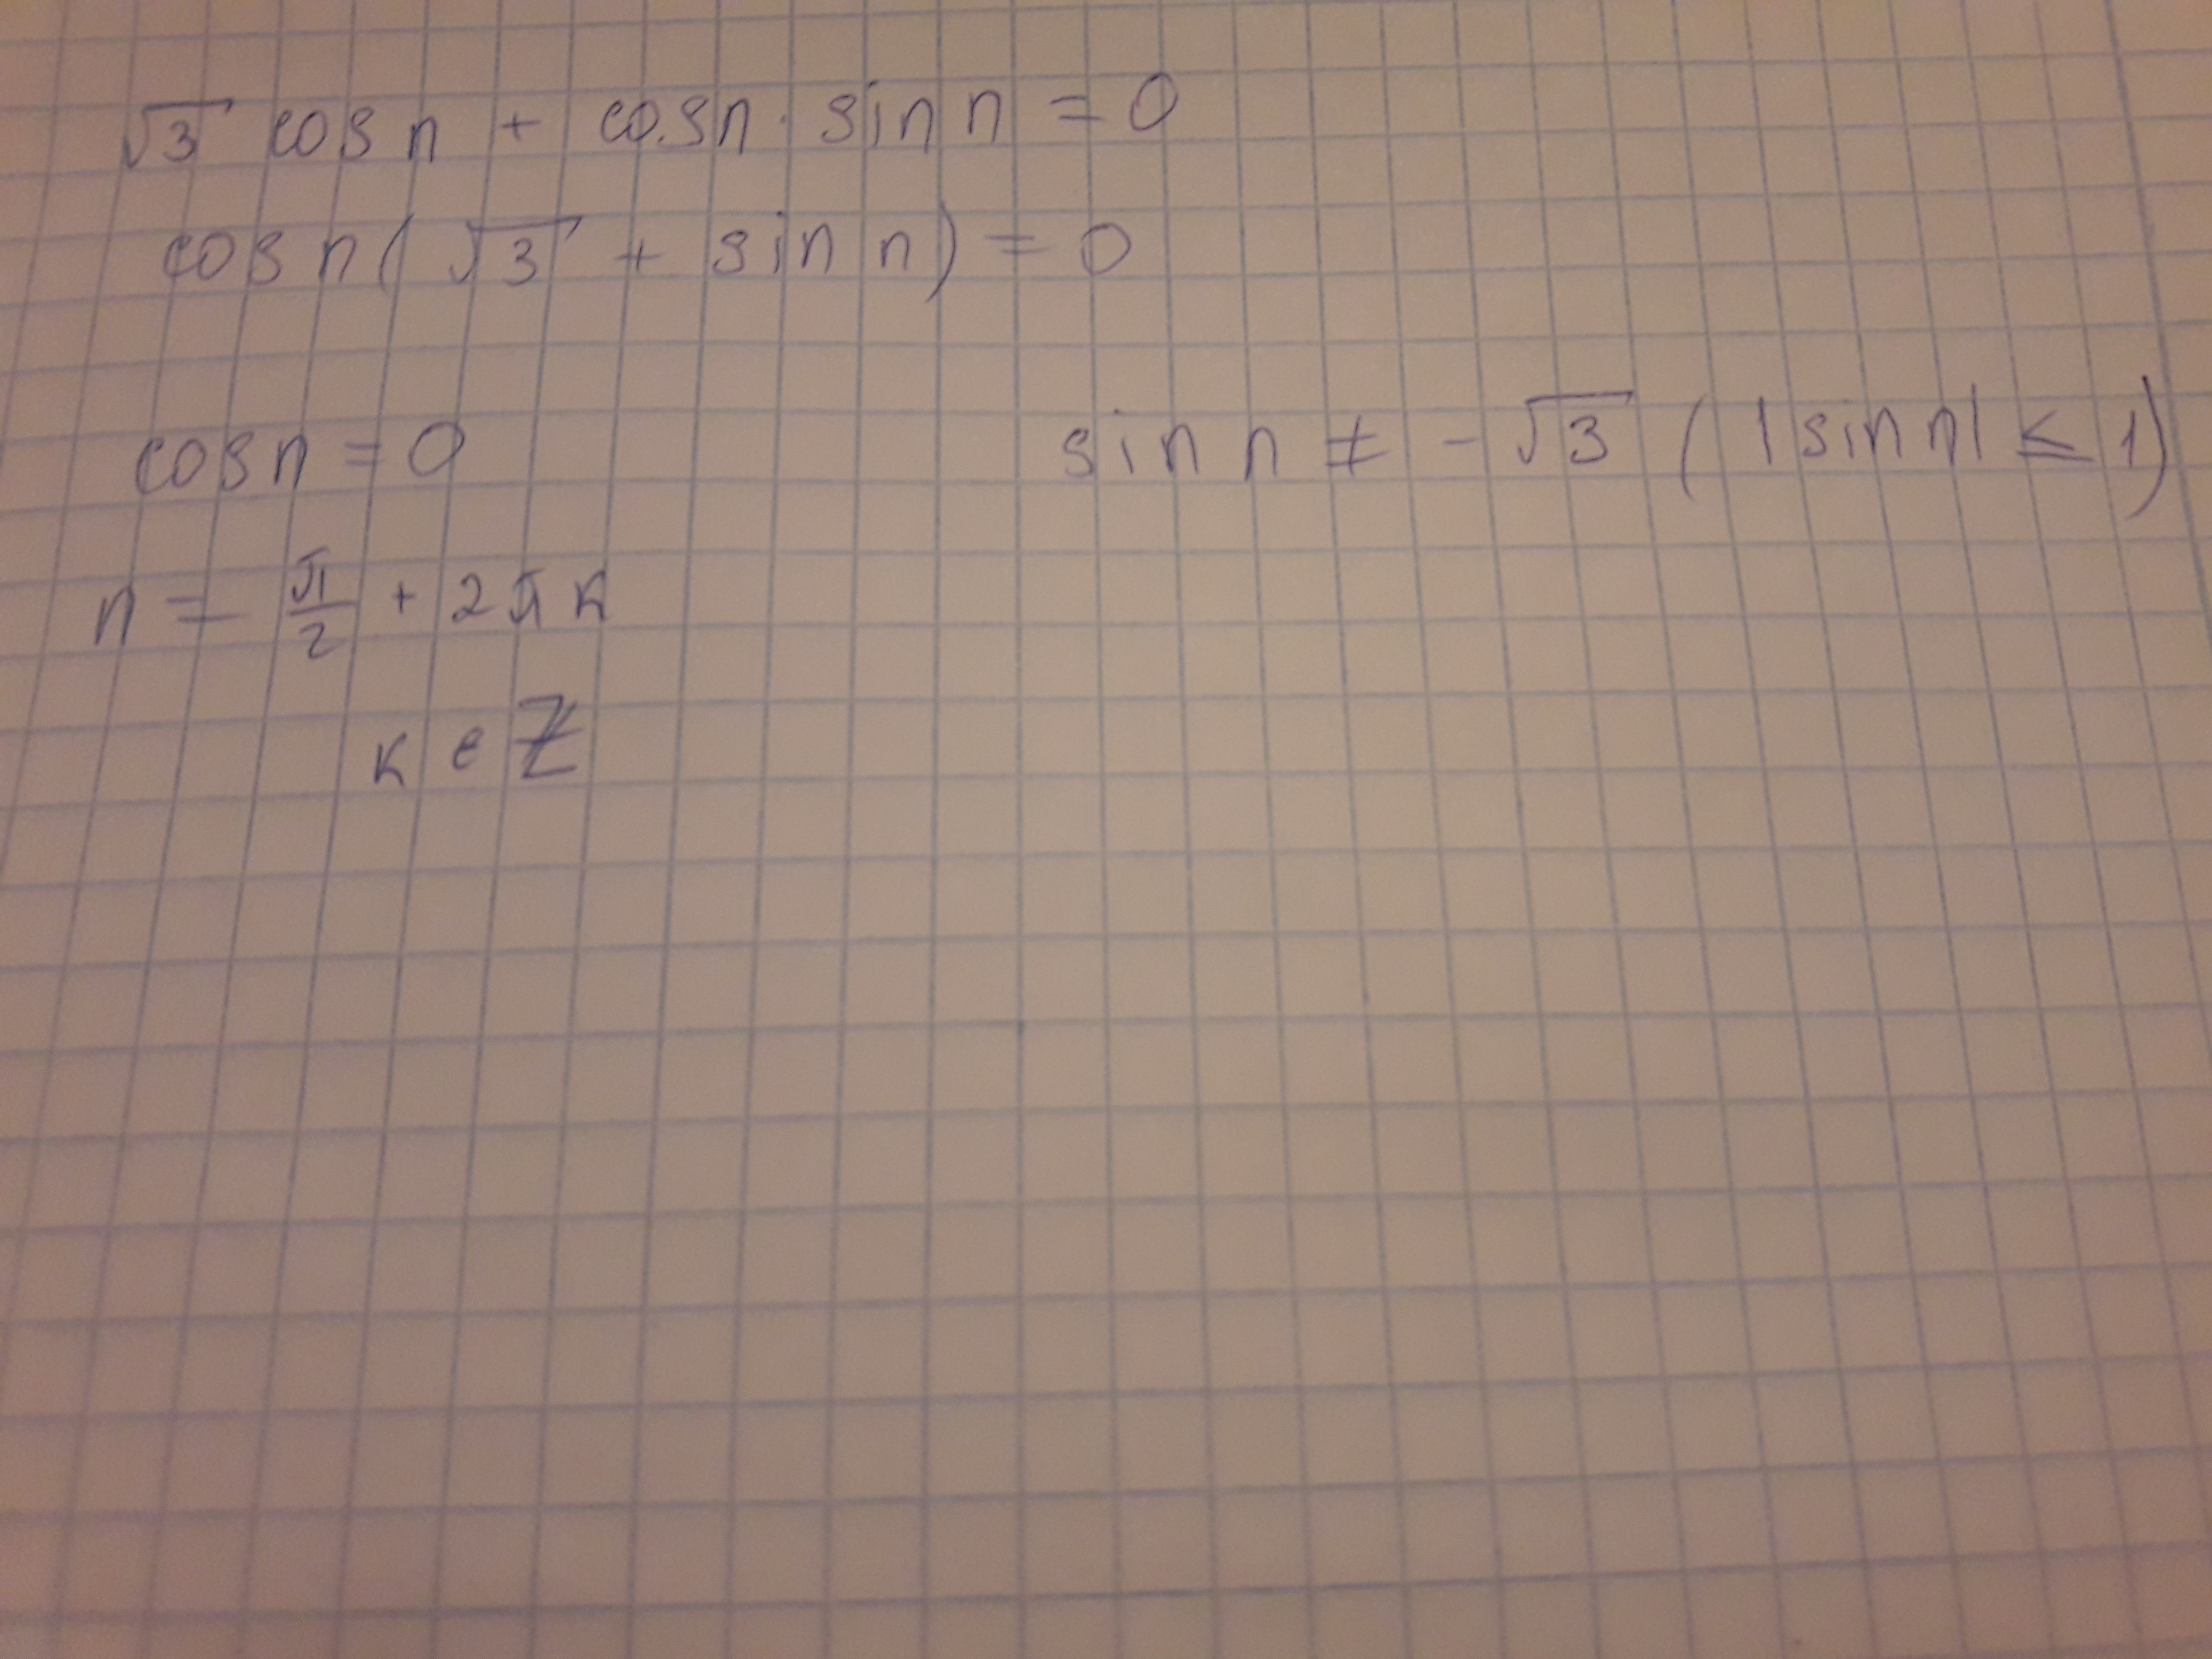 √3 cos n + cos n · sin n = 0
cos n (√3 + sin n) = 0
cos n = 0 sin n ≠ -√3 (|sin n| ≤ 1)
n = π/2 + 2πk
k ∈ Z